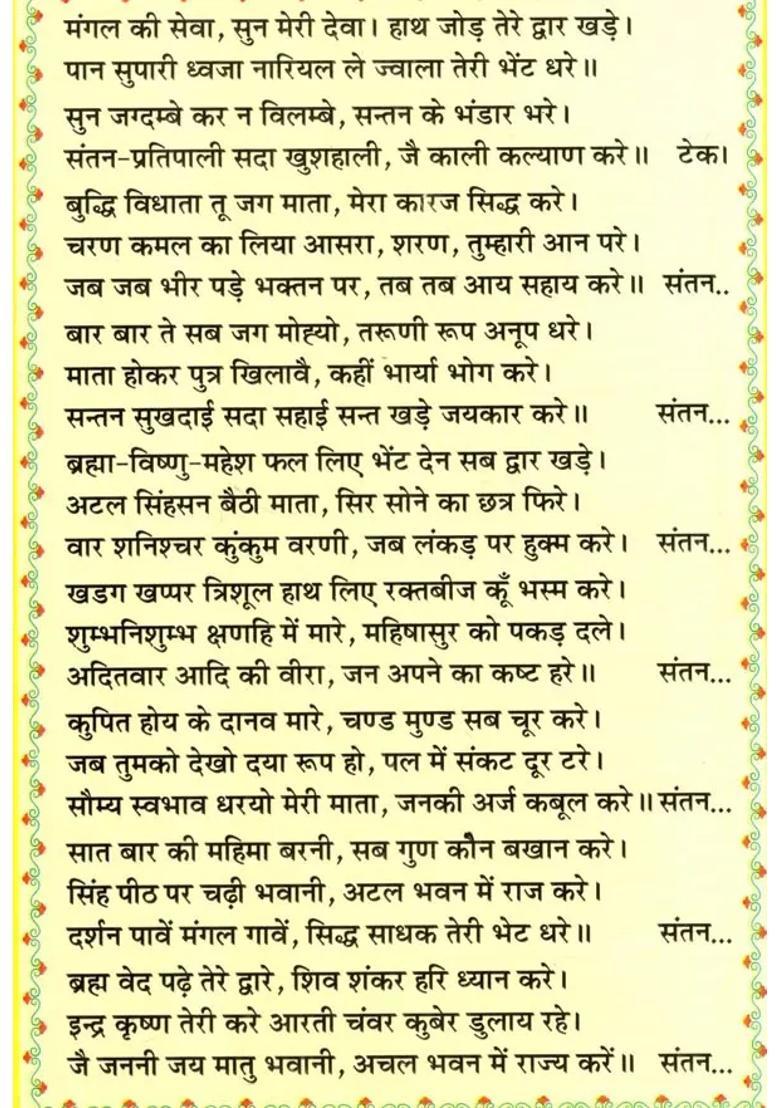 मंगल की सेवा, सुन मेरी देवा। हाथ जोड़ तेरे द्वार खड़े।
पान सुपारी ध्वजा नारियल ले ज्वाला तेरी भेंट धरे॥
सुन जग्दम्बे कर न विलम्बे, सन्तन के भंडार भरे।
संतन-प्रतिपाली सदा खुशहाली, जै काली कल्याण करे॥ टेक।
बुद्धि विधाता तू जग माता, मेरा कारज सिद्ध करे।
चरण कमल का लिया आसरा, शरण, तुम्हारी आन परे।
जब जब भीर पड़े भक्तन पर, तब तब आय सहाय करे॥ संतन..
बार बार ते सब जग मोह्यो, तरूणी रूप अनूप धरे।
माता होकर पुत्र खिलावै, कहीं भार्या भोग करे।
सन्तन सुखदाई सदा सहाई सन्त खड़े जयकार करे॥ संतन...
ब्रह्मा-विष्णु-महेश फल लिए भेंट देन सब द्वार खड़े।
अटल सिंहसन बैठी माता, सिर सोने का छत्र फिरे।
वार शनिश्चर कुंकुम वरणी, जब लंकड़ पर हुक्म करे। संतन...
खडग खप्पर त्रिशूल हाथ लिए रक्तबीज कूँ भस्म करे।
शुम्भनिशुम्भ क्षणहि में मारे, महिषासुर को पकड़ दले।
अदितवार आदि की वीरा, जन अपने का कष्ट हरे॥ संतन...
कुपित होय के दानव मारे, चण्ड मुण्ड सब चूर करे।
जब तुमको देखो दया रूप हो, पल में संकट दूर टरे।
सौम्य स्वभाव धरयो मेरी माता, जनकी अर्ज कबूल करे॥ संतन...
सात बार की महिमा बरनी, सब गुण कौन बखान करे।
सिंह पीठ पर चढ़ी भवानी, अटल भवन में राज करे।
दर्शन पावें मंगल गावें, सिद्ध साधक तेरी भेट धरे॥ संतन...
ब्रह्म वेद पढ़े तेरे द्वारे, शिव शंकर हरि ध्यान करे।
इन्द्र कृष्ण तेरी करे आरती चंवर कुबेर डुलाय रहे।
जै जननी जय मातु भवानी, अचल भवन में राज्य करें॥ संतन...